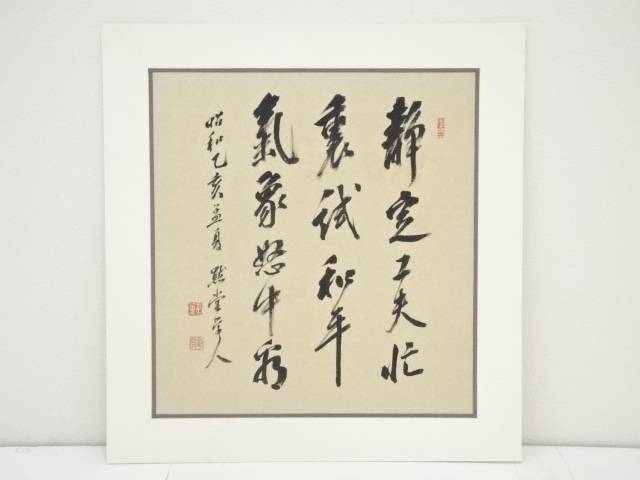 靜定工夫忙
裏試和平
氣象怒中看
昭和乙亥孟夏 默堂學人